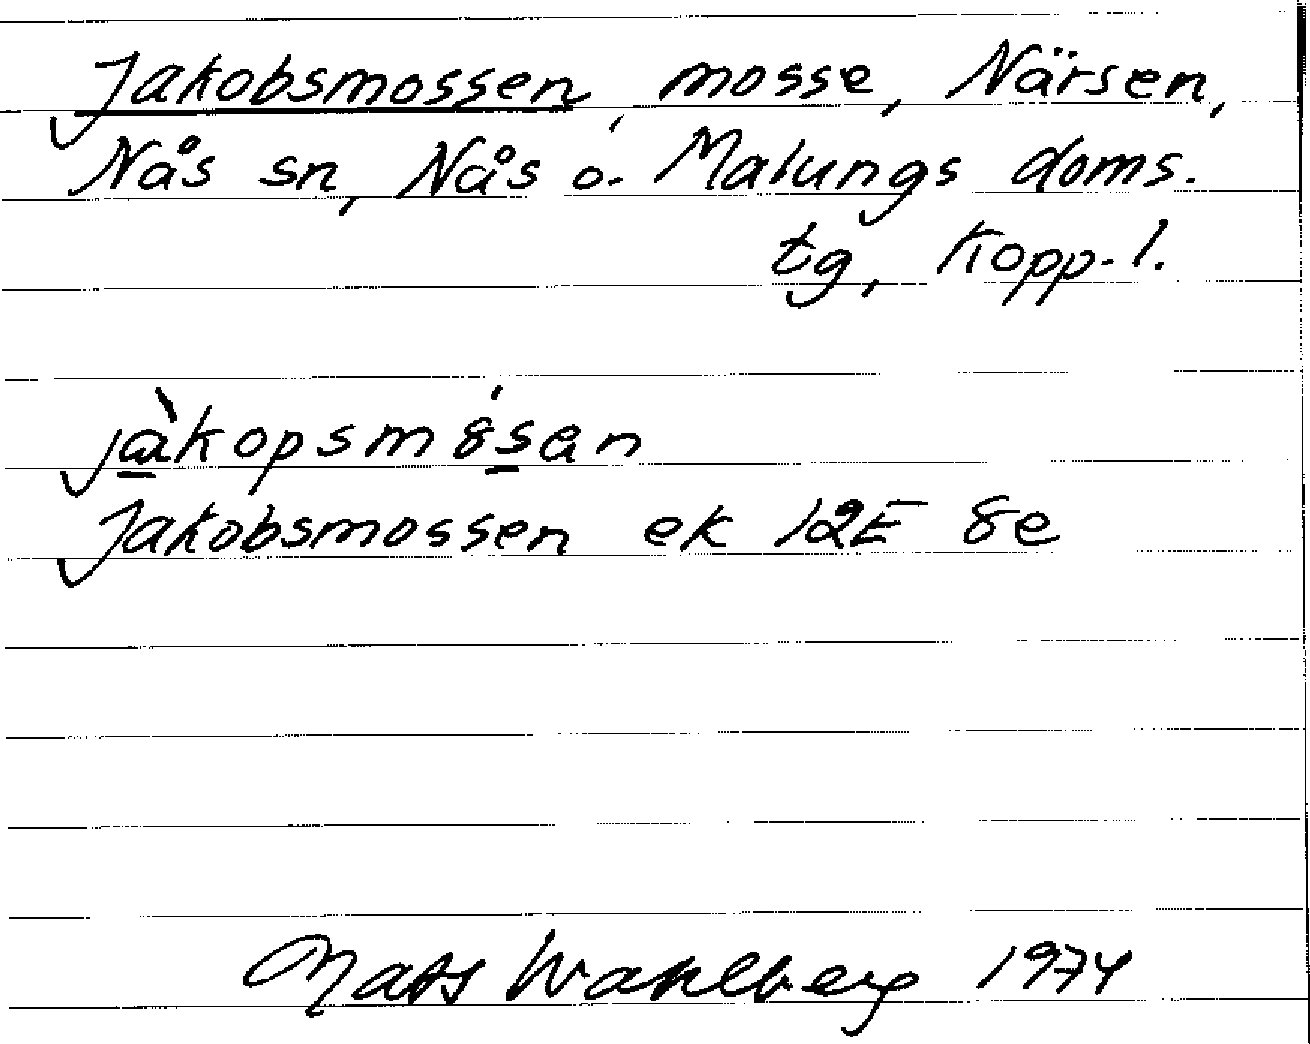 Jakobsmossen, mosse, Närsen,
Nås sn, Nås o. Malungs doms.
tg, Kopp. l.
jàkopsmósan
Jakobsmossen ek 12E 8e
Mats Wahlberg 1974